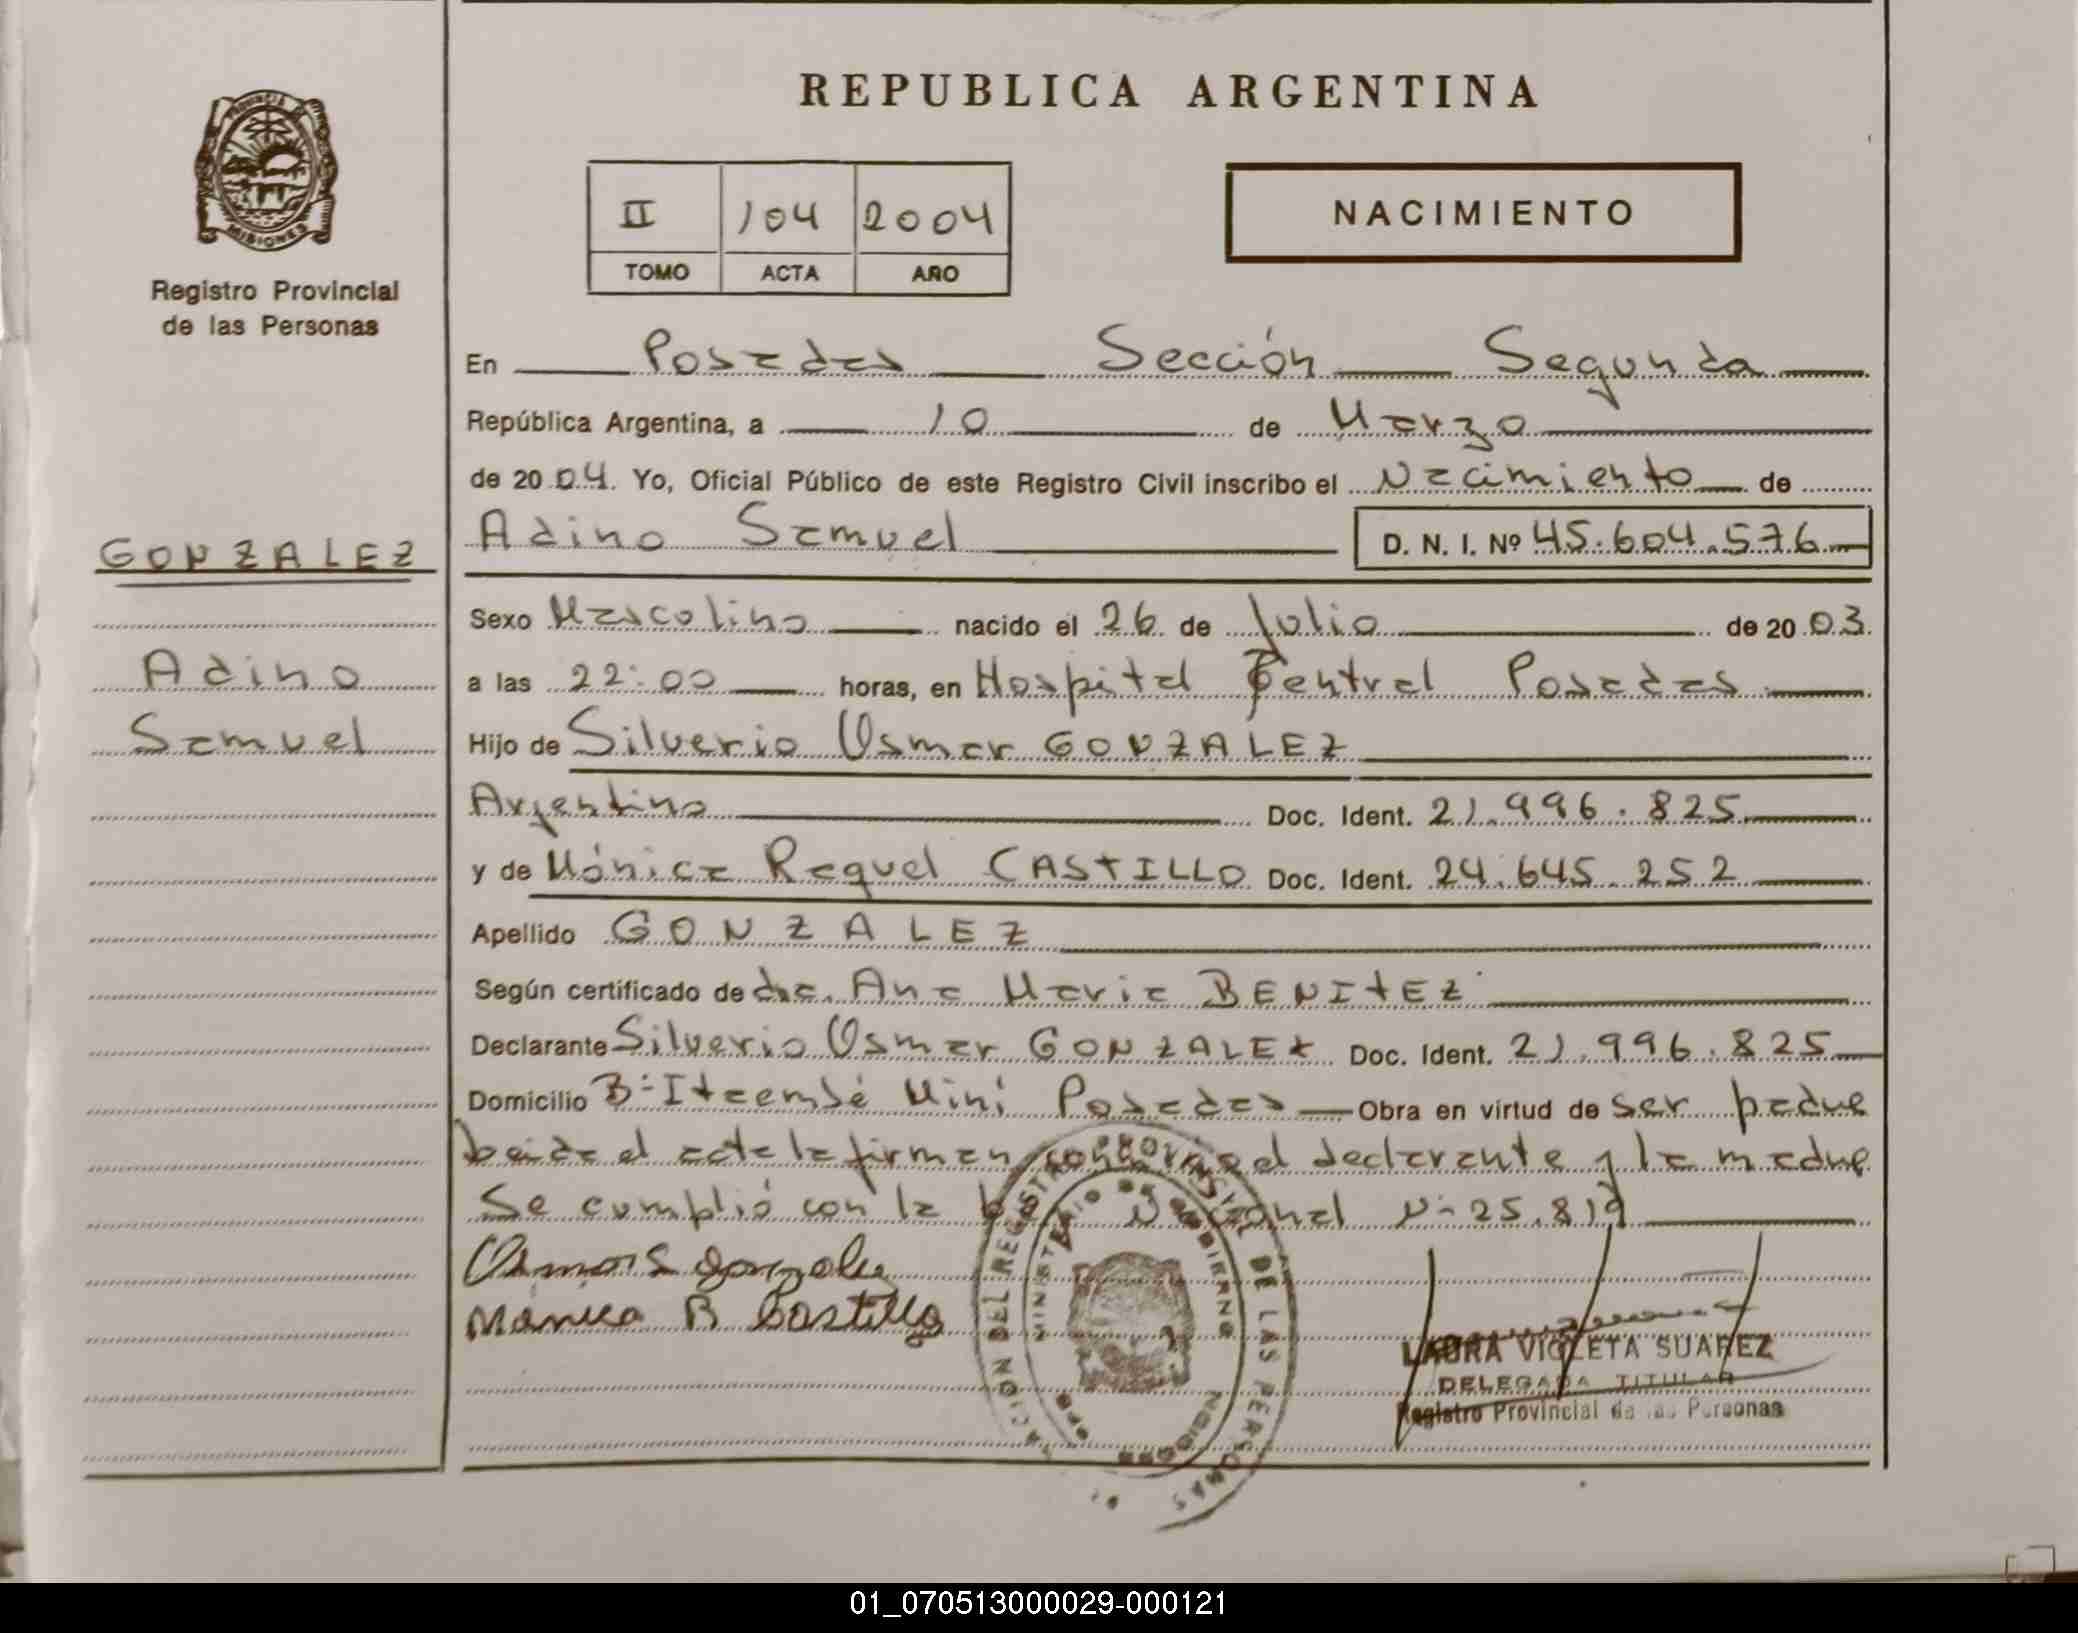 REPUBLICA ARGENTINA
PROVINCIA DE
MISIONES
Registro Provincial
de las Personas
II 104 2004
TOMO ACTA AÑO
NACIMIENTO
En Posadas Sección Segunda
República Argentina, a 10 de Marzo
de 2004. Yo, Oficial Público de este Registro Civil inscribo el Nacimiento de
Adino Samuel D. N. I. Nº 45.604.576
GONZALEZ
Adino
Samuel
Sexo Masculino nacido el 26 de Julio de 2003.
a las 22:00 horas, en Hospital Central Posadas
Hijo de Silverio Osmar GONZALEZ
Argentino Doc. Ident. 21.996.825
y de Mónica Raquel CASTILLO Doc. Ident. 24.645.252
Apellido GONZALEZ
Según certificado de dra. Ana Maria BENITEZ
Declarante Silverio Osmar GONZALEZ Doc. Ident. 21.996.825
Domicilio Bº Itaembé Miní Posadas Obra en virtud de ser padre
leída el acta la firman conmigo el declarante y la madre
Se cumplió con la Nacional Nº 25.819
Osmar S Gonzalez
Mónica R Castillo
DEL REGISTRO PROVINCIAL DE LAS PERSONAS
MINISTERIO DE GOBIERNO
LAURA VIOLETA SUAREZ
DELEGADA TITULAR
Registro Provincial de las Personas
01_070513000029-000121